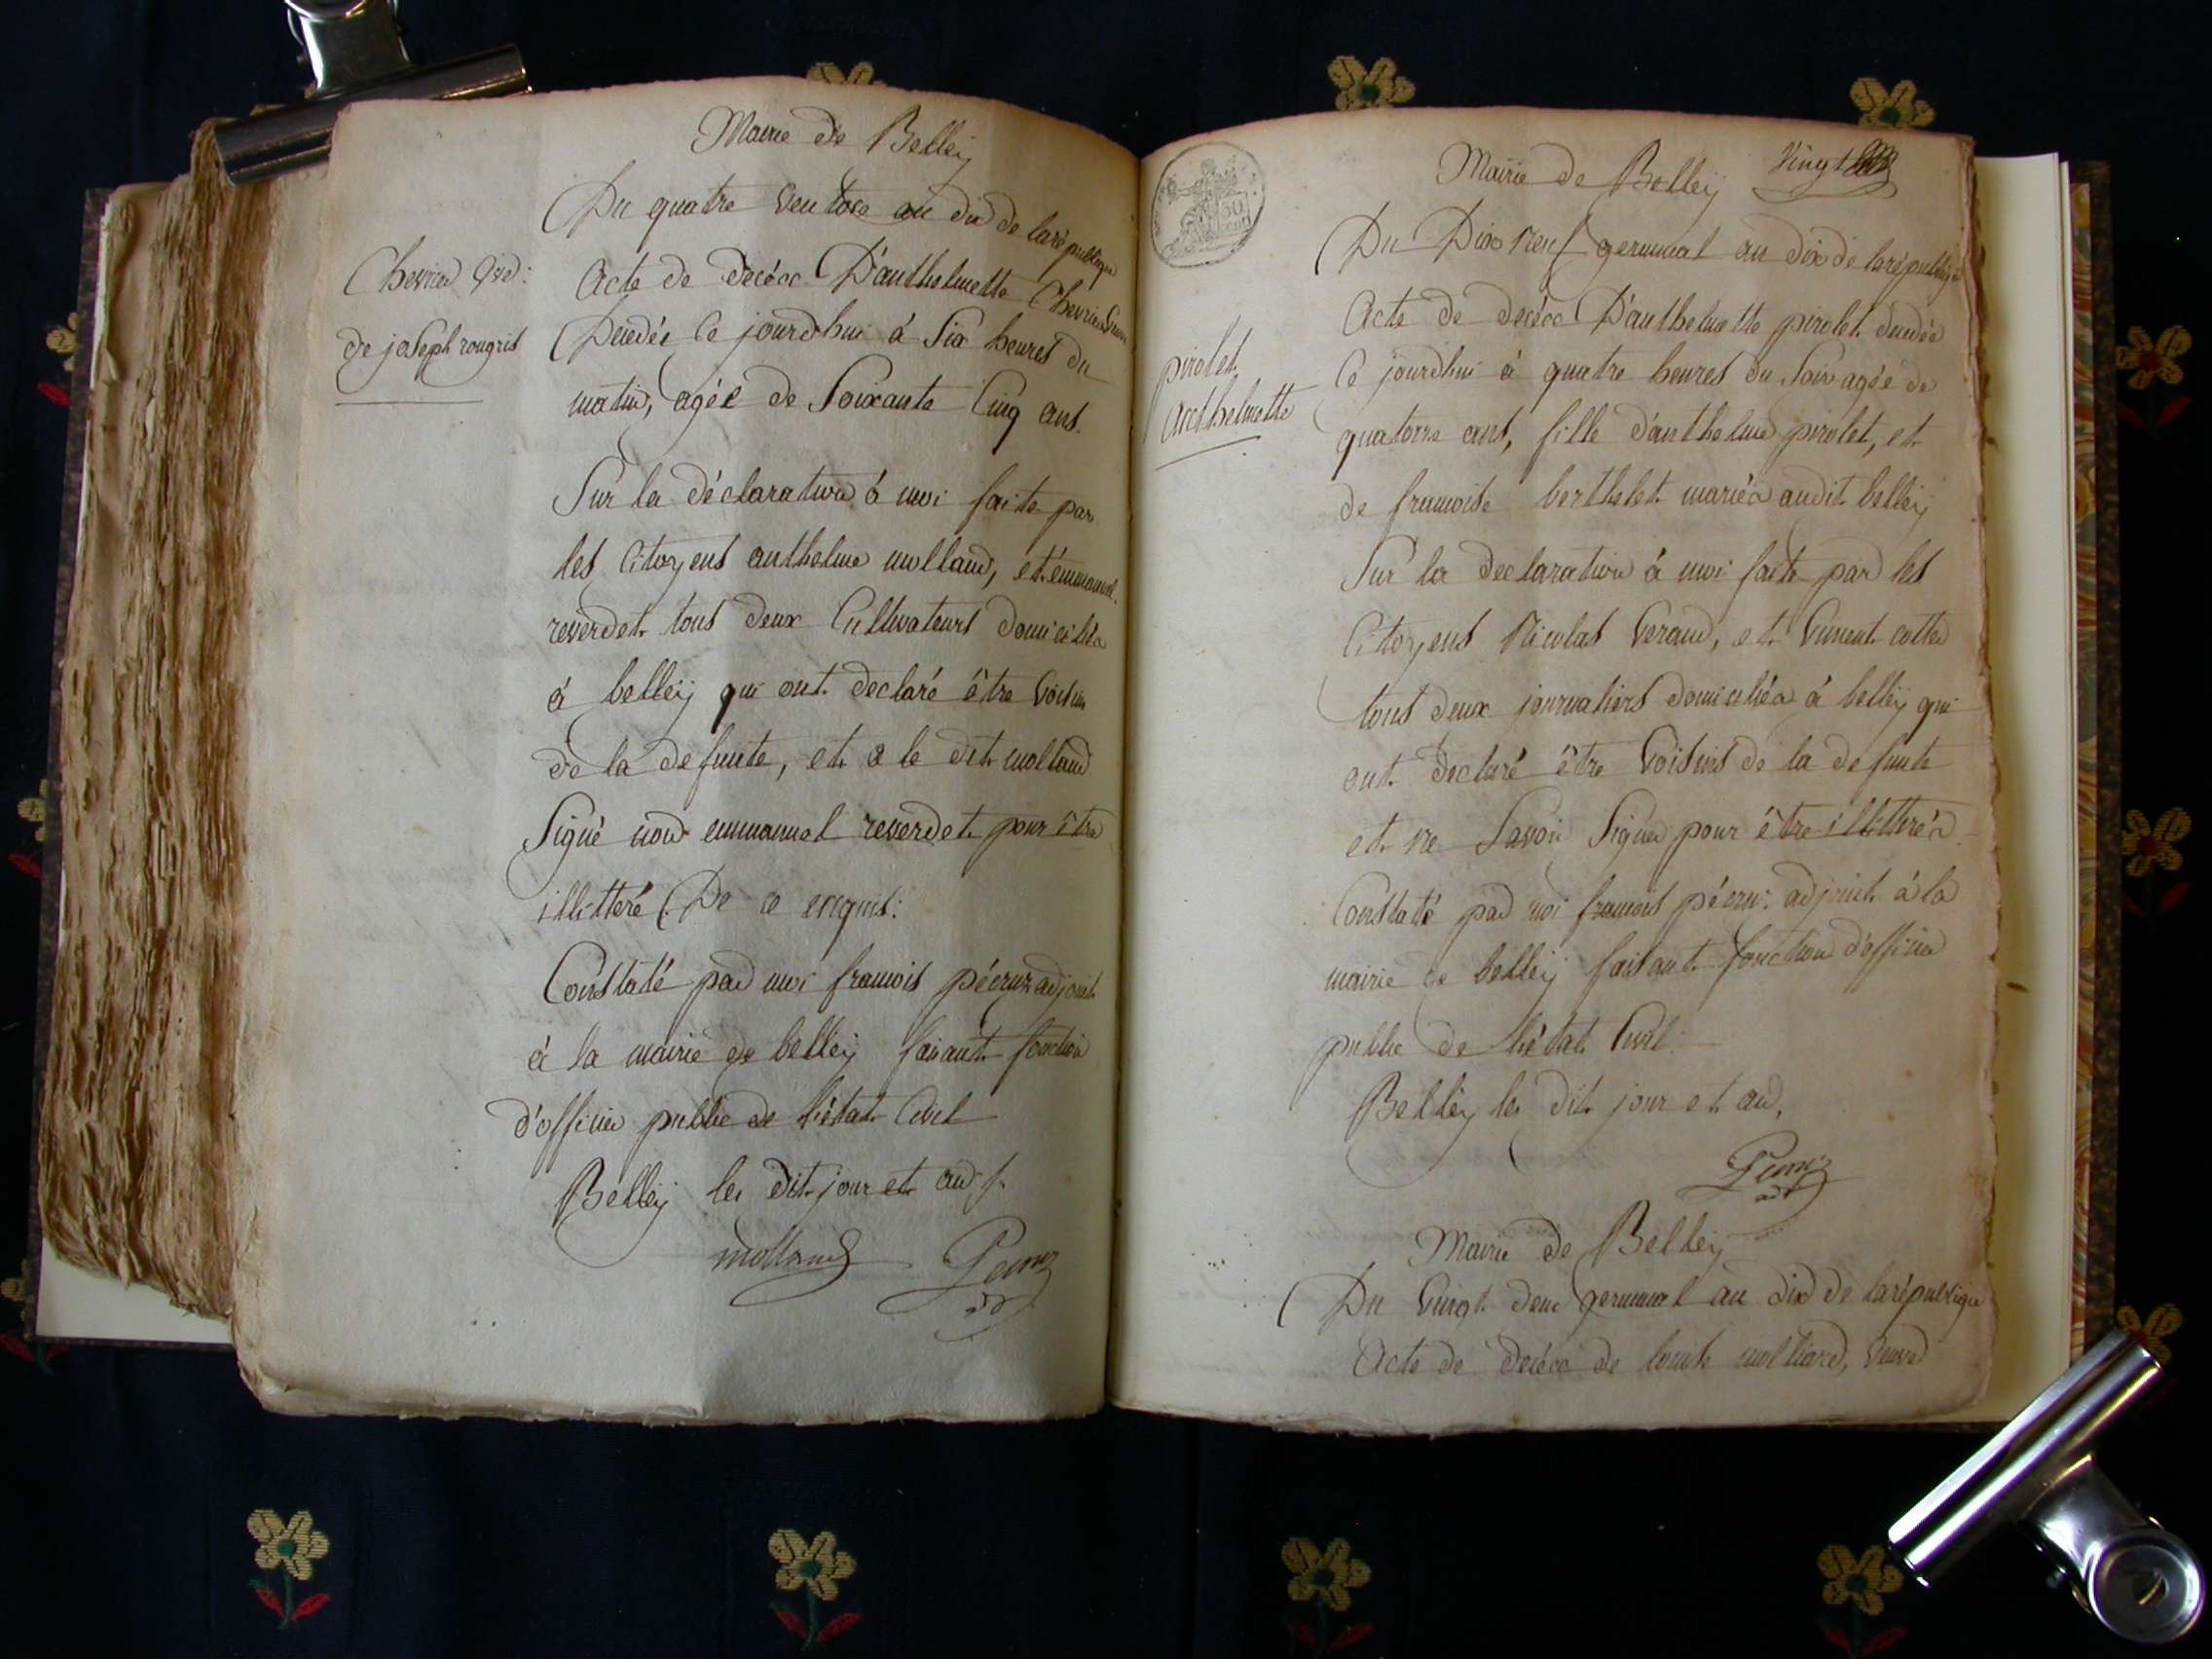 Mairie de Belleÿ
Du quatre Ventose an dix de la république
Chevrier
de joseph rougrit
Acte de décéce D'anthelmette Chevrier
Décédée Ce jourdhui à Six heures du
matin, agée de Soixante Cinq ans.
Sur la déclaration à moi faite par
les Citoyens anthelme molland, et émmanuel
reverdet tous deux Cultivateurs domiciliés
à belleÿ qui ont declaré être Voisins
de la defunte, et a le dit molland
Signé non emmanuel reverdet pour être
illitteré De ce enquis:
Constaté par moi francois pécruz adjoint
à la mairie de belleÿ faisant fonction
d'officier public de l'état Civil
Belleÿ les dit jour et an
molland
Mairie de Belleÿ Vingt
Du Dix neuf germinal an dix de la république
pirolet
Anthelmette
Acte de décéce D'anthelmette pirolet décédée
Ce jourdhui à quatre heures du Soir agée de
quatorze ans, fille d'anthelme pirolet, et
de francoise berthelet mariés audit belleÿ
Sur la declaration à moi faite par les
Citoyens Nicolas Veraud, et Vincent cottin
tous deux journaliers domiciliés à belleÿ qui
ont declaré être Voisins de la defunte
et ne Savoir Signer pour être illitterés
Constaté par moi francois pécruz adjoint à la
mairie de belleÿ faisant fonction d'officier
public de l'état Civil.
Belleÿ les dit jour et an,
Mairie de Belleÿ
Du Vingt deux germinal an dix de la république
Acte de décéce de louise molliard, veuve